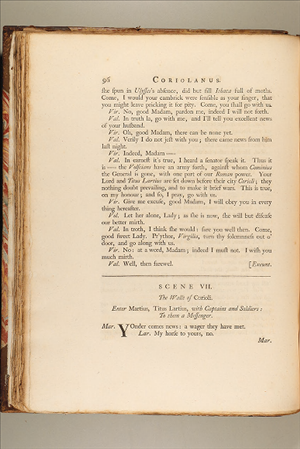 506 CORIOLANUS.
she spun in Ulysses's absence, did but fill Ithaca full of moths.
Come, I would your cambrick were sensible as your finger, that
you might leave pricking it for pity. Come, you shall go with us.
Vir. No, good Madam, pardon me, indeed I will not forth.
Val. In truth la, go with me, and I'll tell you excellent news
of your husband.
Vir. Oh, good Madam, there can be none yet.
Val. Verily I do not jest with you; there came news from him
last night.
Vir. Indeed, Madam —
Val. In earnest it's true, I heard a senator speak it. Thus it
is — the Volscians have an army forth, against whom Cominius
the General is gone, with one part of our Roman power. Your
Lord and Titus Lartius are set down before their city Corioli; they
nothing doubt prevailing, and to make it brief wars. This is true,
on my honour; and so, I pray, go with us.
Vir. Give me excuse, good Madam, I will obey you in every
thing hereafter.
Val. Let her alone, Lady; as she is now, she will but disease
our better mirth.
Val. In troth, I think she would: fare you well then. Come,
good sweet Lady. Pr'ythee, Virgilia, turn thy solemness out o'
door, and go along with us.
Vir. No: at a word, Madam; indeed I must not. I wish you
much mirth.
Val. Well, then farewel. [Exeunt.
SCENE VII.
The Walls of Corioli.
Enter Martius, Titus Lartius, with Captains and Soldiers:
To them a Messenger.
Mar. YOnder comes news: a wager they have met.
Lar. My horse to yours, no.
Mar.